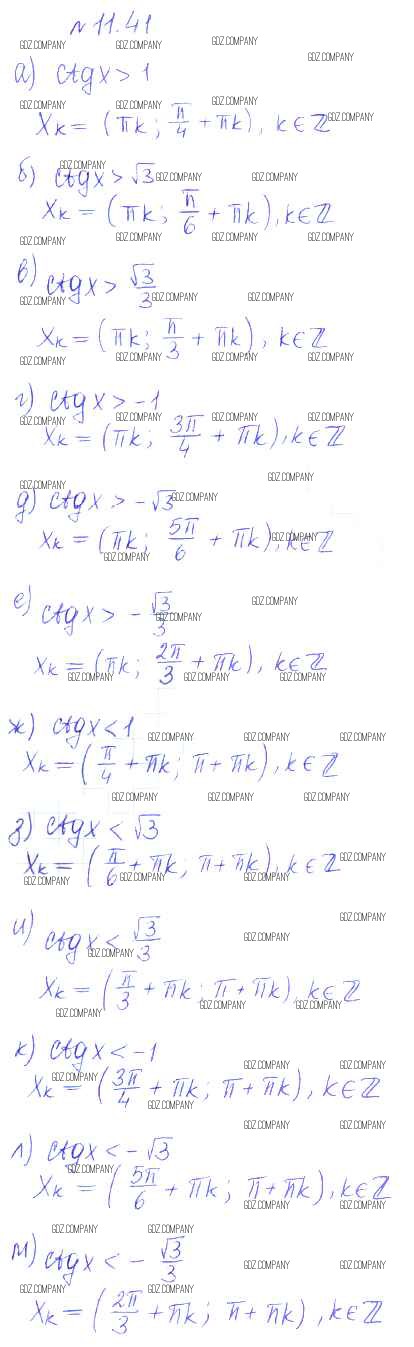 № 11.41
а) ctg x > 1
x_k = (πk; π/4 + πk), k ∈ ℤ
б) ctg x > √3
x_k = (πk; π/6 + πk), k ∈ ℤ
в) ctg x > √3/3
x_k = (πk; π/3 + πk), k ∈ ℤ
г) ctg x > -1
x_k = (πk; 3π/4 + πk), k ∈ ℤ
д) ctg x > -√3
x_k = (πk; 5π/6 + πk), k ∈ ℤ
е) ctg x > -√3/3
x_k = (πk; 2π/3 + πk), k ∈ ℤ
ж) ctg x < 1
x_k = (π/4 + πk; π + πk), k ∈ ℤ
з) ctg x < √3
x_k = (π/6 + πk; π + πk), k ∈ ℤ
и) ctg x < √3/3
x_k = (π/3 + πk; π + πk), k ∈ ℤ
к) ctg x < -1
x_k = (3π/4 + πk; π + πk), k ∈ ℤ
л) ctg x < -√3
x_k = (5π/6 + πk; π + πk), k ∈ ℤ
м) ctg x < -√3/3
x_k = (2π/3 + πk; π + πk), k ∈ ℤ
GDZ.COMPANY